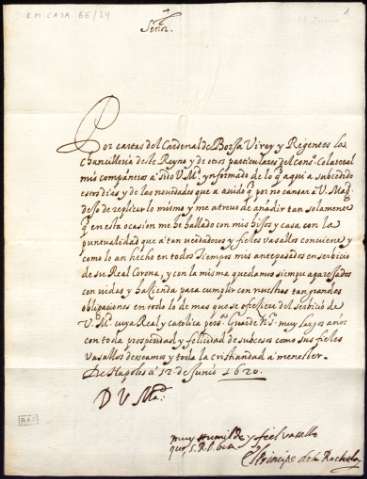 Señor.
Por cartas del Cardenal de Borja Virey y Regentes la
Chancilleria deste Reyno y de otros particulares del cons.º Colateral
mis compañeros a sido V.M.d ynformado de lo q̃ aqui a subcedido
estos dias y de las nouedades que a auido q̃ por no cansar a V. Mag.d
dejo de replicar lo mismo y me atreuo de añadir tan solamente
q̃ en esta ocasion me he hallado con mis hijos y casa con la
puntualidad que a tan verdaderos y fieles vasallos conviene y
como lo an hecho en todos tiempos mis antepasados en seruicio
de su Real Corona, y con la misma quedamos siempre aparejados
con vidas y hazienda para cumplir con nuestras tan grandes
obligaciones en todo lo de mas que se ofreciere del seruicio de
V. M.d cuya Real y catolica pers.ª Guarde N.S. muy largos años
con toda prosperidad y felicidad de sucesos como sus fieles
Vasallos deseamos y toda la cristiandad a menester.
De Napoles a 12 de Junio 1620.
D V Ma.
muy humilde y fiel vasallo
que S.R.P. besa
El Principe de la Rochela